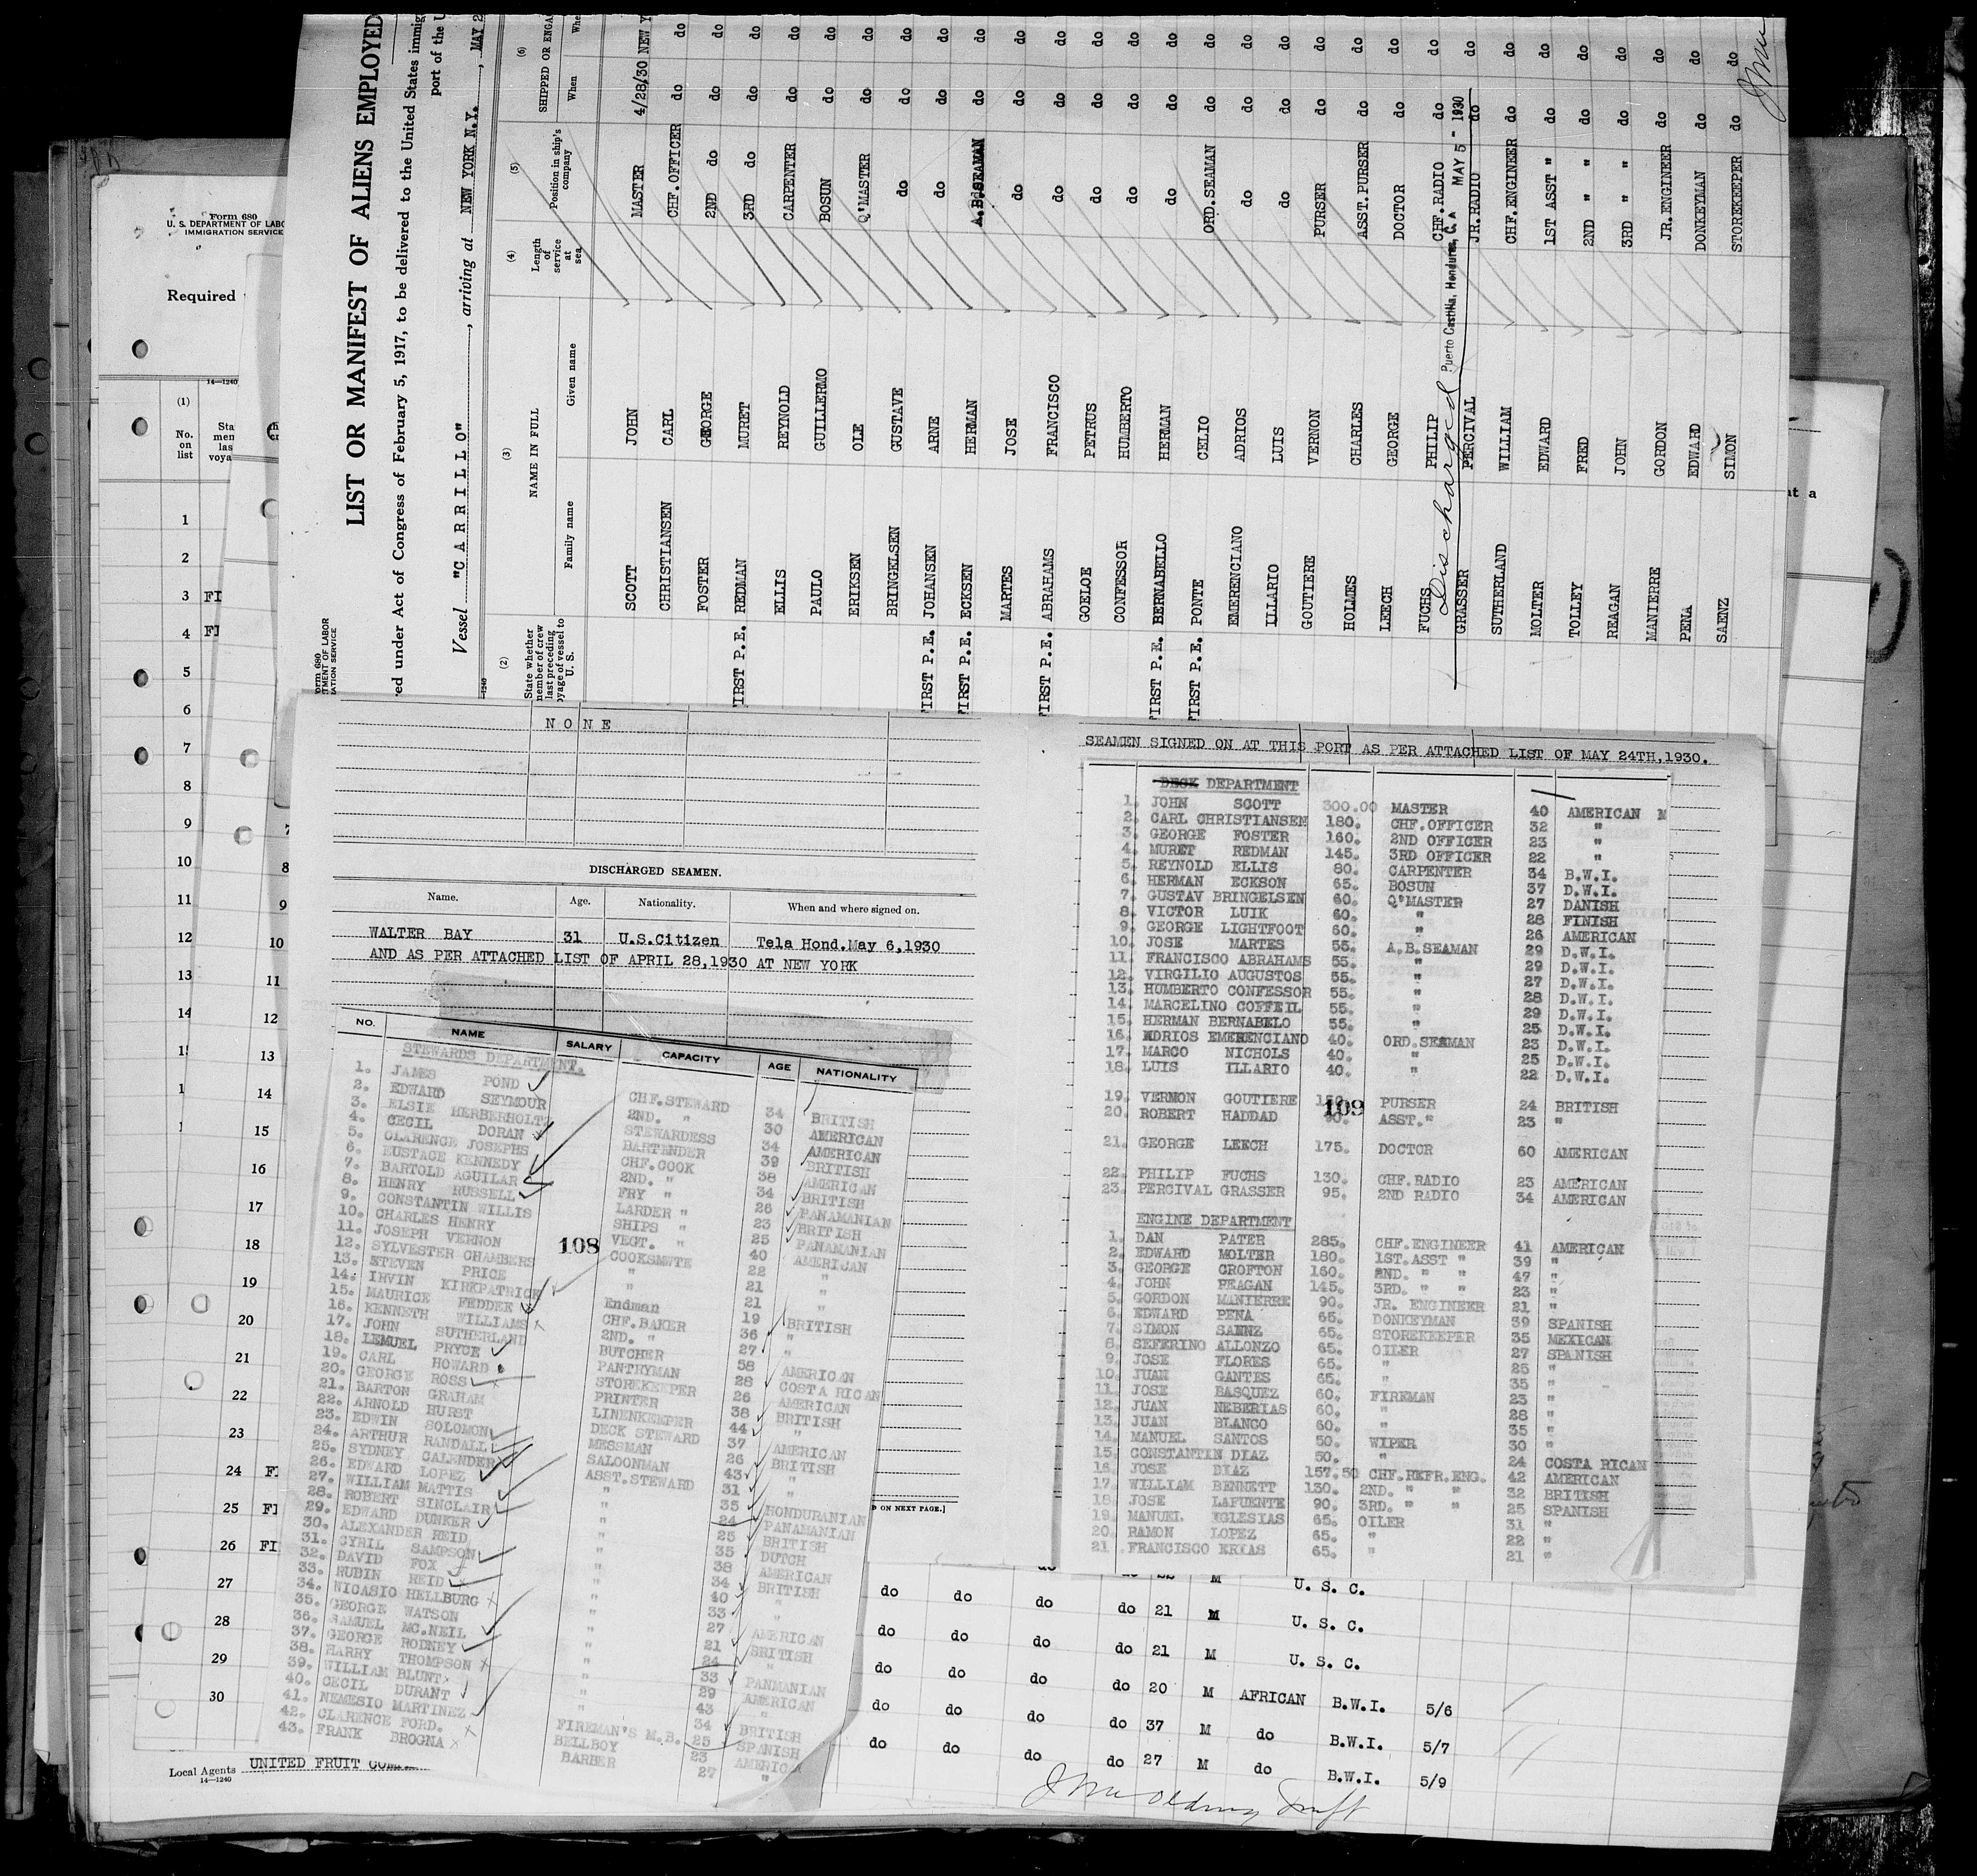 Form 680
U. S. DEPARTMENT OF LABO
IMMIGRATION SERVICE
Required
14—1240
(1)
No.
on
list
Sta
men
las
voya
1
2
3 FI
4 FI
5
6
7
8
9
10
11
12
13
14
24 FI
25 FI
26 FI
27
28
29
30
Local Agents UNITED FRUIT
14—1240
LIST OR MANIFEST OF ALIENS EMPLOYED
ed under Act of Congress of February 5, 1917, to be delivered to the United States immig
port of the U
Vessel "C A R R I L L O", arriving at NEW YORK N.Y., MAY 2
(2) (3) (4) (5) (6)
State whether member of crew last preceding voyage of vessel to U. S.
NAME IN FULL
Family name Given name
Length of service at sea
Position in ship's company
SHIPPED OR ENGA
When Whe
SCOTT JOHN MASTER 4/28/30 NEW Y
CHRISTIANSEN CARL CHF.OFFICER do do
FOSTER GEORGE 2ND do do do
FIRST P.E. REDMAN MURET 3RD do do do
ELLIS REYNOLD CARPENTER do do
PAULO GUILLERMO BOSUN do do
ERIKSEN OLE Q'MASTER do do
BRINGELSEN GUSTAVE do do do
FIRST P.E. JOHANSEN ARNE do do do
FIRST P.E. ECKSEN HERMAN A.B.SEAMAN do do
MARTES JOSE do do do
FIRST P.E. ABRAHAMS FRANCISCO do do do
GOELOE PETRUS do do do
CONFESSOR HUMBERTO do do do
FIRST P.E. BERNABELLO HERMAN do do do
FIRST P.E. PONTE CELIO ORD.SEAMAN do do
EMERENCIANO ADRIOS do do do
ILLARIO LUIS do do do
GOUTIERE VERNON PURSER do do
HOLMES CHARLES ASST.PURSER do do
LEECH GEORGE DOCTOR do do
FUCHS PHILIP CHF.RADIO do do
Discharged Puerto Castilla, Honduras, C. A MAY 5 - 1930
GRASSER PERCIVAL JR.RADIO do do
SUTHERLAND WILLIAM CHF.ENGINEER do do
MOLTER EDWARD 1ST ASST " do do
TOLLEY FRED 2ND " " do do
REAGAN JOHN 3RD " " do do
MANIERRE GORDON JR.ENGINEER do do
PENA EDWARD DONKEYMAN do do
SAENZ SIMON STOREKEEPER do do
N O N E
DISCHARGED SEAMEN.
Name. Age. Nationality. When and where signed on.
WALTER BAY 31 U.S.Citizen Tela Hond.May 6,1930
AND AS PER ATTACHED LIST OF APRIL 28,1930 AT NEW YORK
NO. NAME SALARY CAPACITY AGE NATIONALITY
STEWARDS DEPARTMENT.
1. JAMES POND CHF.STEWARD 34 BRITISH
2. EDWARD SEYMOUR 2ND. " 30 AMERICAN
3. ELSIE HERBERHOLTZ STEWARDESS 34 AMERICAN
4. CECIL DORAN BARTENDER 39 BRITISH
5. CLARENCE JOSEPHS CHF.COOK 38 AMERICAN
6. EUSTACE KENNEDY 2ND. " 34 BRITISH
7. BARTOLD AGUILAR FRY " 26 PANAMANIAN
8. HENRY RUSSELL LARDER " 23 BRITISH
9. CONSTANTIN WILLIS SHIPS " 25 PANAMANIAN
10. CHARLES HENRY VEGT. " 40 AMERICAN
11. JOSEPH VERNON COOKSMWTE 22 "
12. SYLVESTER CHAMBERS " 21 "
13. STEVEN PRICE " 21 "
14. IRVIN KIRKPATRICK Endman 19 BRITISH
15. MAURICE FEDDEE CHF.BAKER 36 "
16. KENNETH WILLIAMS 2ND. " 27 "
17. JOHN SUTHERLAND BUTCHER 58 AMERICAN
18. LEMUEL PRYCE PANTRYMAN 28 COSTA RICAN
19. CARL HOWARD STOREKEEPER 26 AMERICAN
20. GEORGE ROSS PRINTER 38 BRITISH
21. BARTON GRAHAM LINENKEEPER 44 "
22. ARNOLD HURST DECK STEWARD 37 AMERICAN
23. EDWIN SOLOMON MESSMAN 26 BRITISH
24. ARTHUR RANDALL SALOONMAN 43 "
25. SYDNEY CALENDER ASST.STEWARD 31 "
26. EDWARD LOPEZ " 35 HONDURANIAN
27. WILLIAM MATTIS " 24 PANAMANIAN
28. ROBERT SINCLAIR " 25 BRITISH
29. EDWARD DUNKER " 35 DUTCH
30. ALEXANDER REID " 38 AMERICAN
31. CYRIL SAMPSON " 34 BRITISH
32. DAVID FOX " 40 "
33. RUBIN REID " 33 "
34. NICASIO HELLBURG " 27 AMERICAN
35. GEORGE WATSON " 21 BRITISH
36. SAMUEL MC.NEIL " 24 "
37. GEORGE RODNEY " 33 PANMANIAN
38. HARRY THOMPSON " 29 AMERICAN
39. WILLIAM BLUNT " 43 "
40. CECIL DURANT " 34 BRITISH
41. NEMESIO MARTINEZ FIREMAN'S M.B. 25 SPANISH
42. CLARENCE FORD. BELLBOY 23 AMERICA
43. FRANK BROGNA BARBER 27 "
108
SEAMEN SIGNED ON AT THIS PORT AS PER ATTACHED LIST OF MAY 24TH,1930.
DECK DEPARTMENT
1. JOHN SCOTT 300.00 MASTER 40 AMERICAN
2. CARL CHRISTIANSEN 180. CHF.OFFICER 32 "
3. GEORGE FOSTER 160. 2ND OFFICER 23 "
4. MURET REDMAN 145. 3RD OFFICER 22 "
5. REYNOLD ELLIS 80. CARPENTER 34 B.W.I.
6. HERMAN ECKSON 65. BOSUN 37 D.W.I.
7. GUSTAV BRINGELSEN 60. Q'MASTER 27 DANISH
8. VICTOR LUIK 60. " 28 FINISH
9. GEORGE LIGHTFOOT 60. " 26 AMERICAN
10. JOSE MARTES 55. A.B.SEAMAN 29 D.W.I.
11. FRANCISCO ABRAHAMS 55. " 29 D.W.I.
12. VIRGILIO AUGUSTOS 55. " 27 D.W.I.
13. HUMBERTO CONFESSOR 55. " 28 D.W.I.
14. MARCELINO COFFEIL 55. " 29 D.W.I.
15. HERMAN BERNABELO 55. " 25 D.W.I.
16. ADRIOS EMERENCIANO 40. ORD.SEAMAN 23 D.W.I.
17. MARCO NICHOLS 40. " 25 D.W.I.
18. LUIS ILLARIO 40. " 22 D.W.I.
19. VERNON GOUTIERE PURSER 24 BRITISH
20. ROBERT HADDAD 90. ASST." 23 "
109
21. GEORGE LEECH 175. DOCTOR 60 AMERICAN
22. PHILIP FUCHS 130. CHF.RADIO 23 AMERICAN
23. PERCIVAL GRASSER 95. 2ND RADIO 34 AMERICAN
ENGINE DEPARTMENT
1. DAN PATER 285. CHF.ENGINEER 41 AMERICAN
2. EDWARD MOLTER 180. 1ST.ASST " 39 "
3. GEORGE CROFTON 160. 2ND. " " 47 "
4. JOHN REAGAN 145. 3RD. " " 23 "
5. GORDON MANIERRE 90. JR. ENGINEER 21 "
6. EDWARD PENA 65. DONKEYMAN 39 SPANISH
7. SIMON SAENZ 65. STOREKEEPER 35 MEXICAN
8. SEFERINO ALLONZO 65. OILER 27 SPANISH
9. JOSE FLORES 65. " 25 "
10. JUAN GANTES 65. " 35 "
11. JOSE BASQUEZ 60. FIREMAN 23 "
12. JUAN NEBERIAS 60. " 28 "
13. JUAN BLANCO 60. " 35 "
14. MANUEL SANTOS 50. WIPER 30 "
15. CONSTANTIN DIAZ 50. " 24 COSTA RICAN
16. JOSE DIAZ 157.50 CHF.REFR.ENG. 42 AMERICAN
17. WILLIAM BENNETT 130. 2ND. " " 32 BRITISH
18. JOSE LAFUENTE 90. 3RD. " " 25 SPANISH
19. MANUEL YGLESIAS 65. OILER 31 "
20. RAMON LOPEZ 65. " 22 "
21. FRANCISCO ERIAS 65. " 21 "
D ON NEXT PAGE.]
M U. S. C.
do do do do 21 M U. S. C.
do do do do 21 M U. S. C.
do do do do 20 M AFRICAN B.W.I. 5/6
do do do do 37 M do B.W.I. 5/7
do do do do 27 M do B.W.I. 5/9